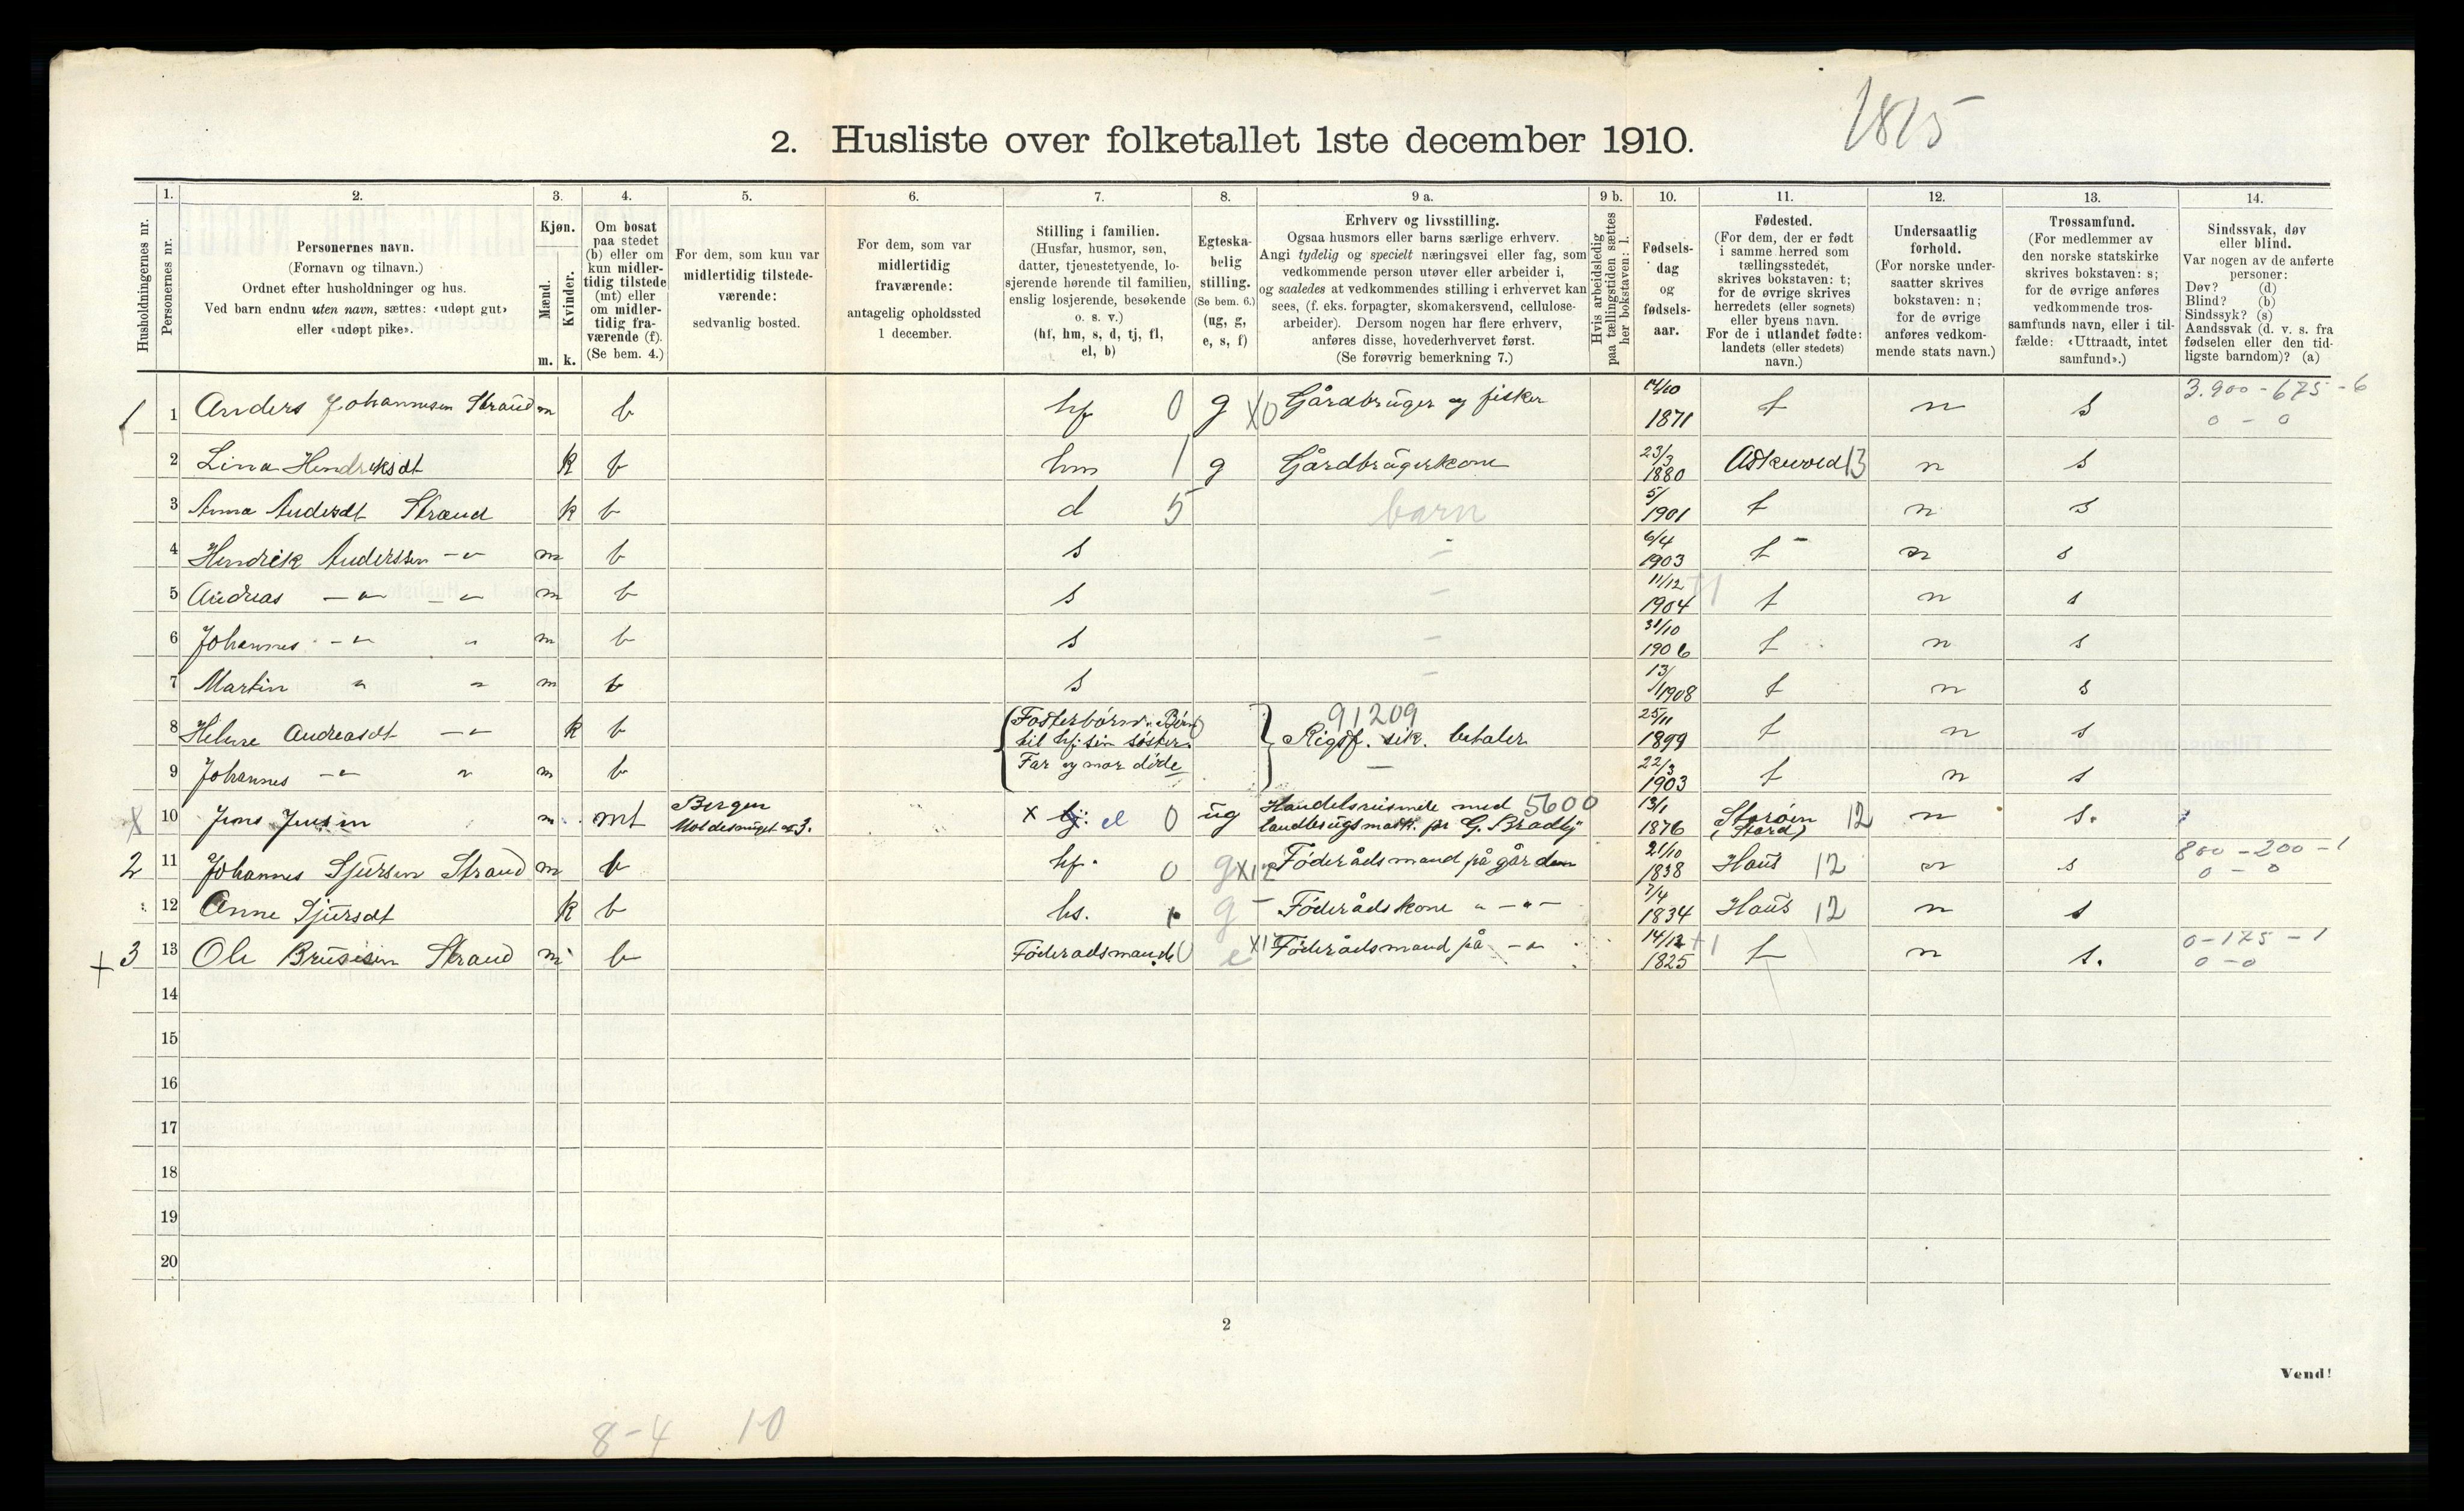 1815
2. Husliste over folketallet 1ste december 1910.
Husholdningernes nr.
1.
Personernes nr.
2.
Personernes navn.
(Fornavn og tilnavn.)
Ordnet efter husholdninger og hus.
Ved barn endnu uten navn, sættes: «udøpt gut»
eller «udøpt pike».
3.
Kjøn.
Mænd.
Kvinder.
m. k.
4.
Om bosat
paa stedet
(b) eller om
kun midler-
tidig tilstede
(mt) eller
om midler-
tidig fra-
værende (f).
(Se bem. 4.)
5.
For dem, som kun var
midlertidig tilstede-
værende:
sedvanlig bosted.
6.
For dem, som var
midlertidig
fraværende:
antagelig opholdssted
1 december.
7.
Stilling i familien.
(Husfar, husmor, søn,
datter, tjenestetyende, lo-
sjerende hørende til familien,
enslig losjerende, besøkende
o. s. v.)
(hf, hm, s, d, tj, fl,
el, b)
8.
Egteska-
belig
stilling.
(Se bem. 6.)
(ug, g,
e, s, f)
9 a.
Erhverv og livsstilling.
Ogsaa husmors eller barns særlige erhverv.
Angi tydelig og specielt næringsvei eller fag, som
vedkommende person utøver eller arbeider i,
og saaledes at vedkommendes stilling i erhvervet kan
sees, (f. eks. forpagter, skomakersvend, cellulose-
arbeider). Dersom nogen har flere erhverv,
anføres disse, hovederhvervet først.
(Se forøvrig bemerkning 7.)
9 b.
Hvis arbeidsledig
paa tællingstiden sættes
her bokstaven: l.
10.
Fødsels-
dag
og
fødsels-
aar.
11.
Fødested.
(For dem, der er født
i samme herred som
tællingsstedet,
skrives bokstaven: t;
for de øvrige skrives
herredets (eller sognets)
eller byens navn.
For de i utlandet fødte:
landets (eller stedets)
navn.)
12.
Undersaatlig
forhold.
(For norske under-
saatter skrives
bokstaven: n;
for de øvrige
anføres vedkom-
mende stats navn.)
13.
Trossamfund.
(For medlemmer av
den norske statskirke
skrives bokstaven: s;
for de øvrige anføres
vedkommende tros-
samfunds navn, eller i til-
fælde: «Uttraadt, intet
samfund».)
14.
Sindssvak, døv
eller blind.
Var nogen av de anførte
personer:
Døv? (d)
Blind? (b)
Sindssyk? (s)
Aandssvak (d. v. s. fra
fødselen eller den tid-
ligste barndom)? (a)
1 1 Anders Johannesen Strand m b hf 0 g X0 Gårdbruger og fisker 14/10 1871 t n s 3.900 - 675 - 6 0 - 0
2 Lina Hendriksdt k b hm 1 g Gårdbrugerkone 23/3 1880 Askevold 13 n s
3 Anna Andersdt Strand k b d 5 barn 5/ 1901 t n s
4 Hendrik Anderssen -"- m b s - 6/4 1903 t n s
5 Andreas -"- -"- m b s - 11/12 1904 t n s
6 Johannes -"- " m b s - 31/10 1906 t n s
7 Martin " " m b s - 13/1 1908 t n s
8 Helene Andreasdt -"- k b Fosterbørn. Børn til hf. sin søster. 91209 Rigsf. sik. betaler 25/11 1899 t n s
9 Johannes -"- " m b Far og mor døde 22/3 1903 t n s
X 10 Jens Jensen m mt Bergen Moldesmuget 3. x el 0 ug Handelsreisende med 5600 landbrugsmask. for G. Bradby 13/1 1876 Storøen (Stord) 12 n s.
2 11 Johannes Sjursen Strand m b hf. 0 g X12 Føderådsmand på gården 21/10 1838 Haus 12 n s 800 - 200 - 1 0 - 0
12 Anne Sjursdt k b hs. g - Føderådskone " - " - 7/4 1834 Haus 12 n s
+ 3 13 Ole Brusesen Strand m b Føderadsmand 0 e X12 Føderådsmand på -"- 14/12 1825 +1 t n s. 0 - 175 - 1 0 - 0
14
15
16
17
18
19
20
2
Vend!
8-4 10